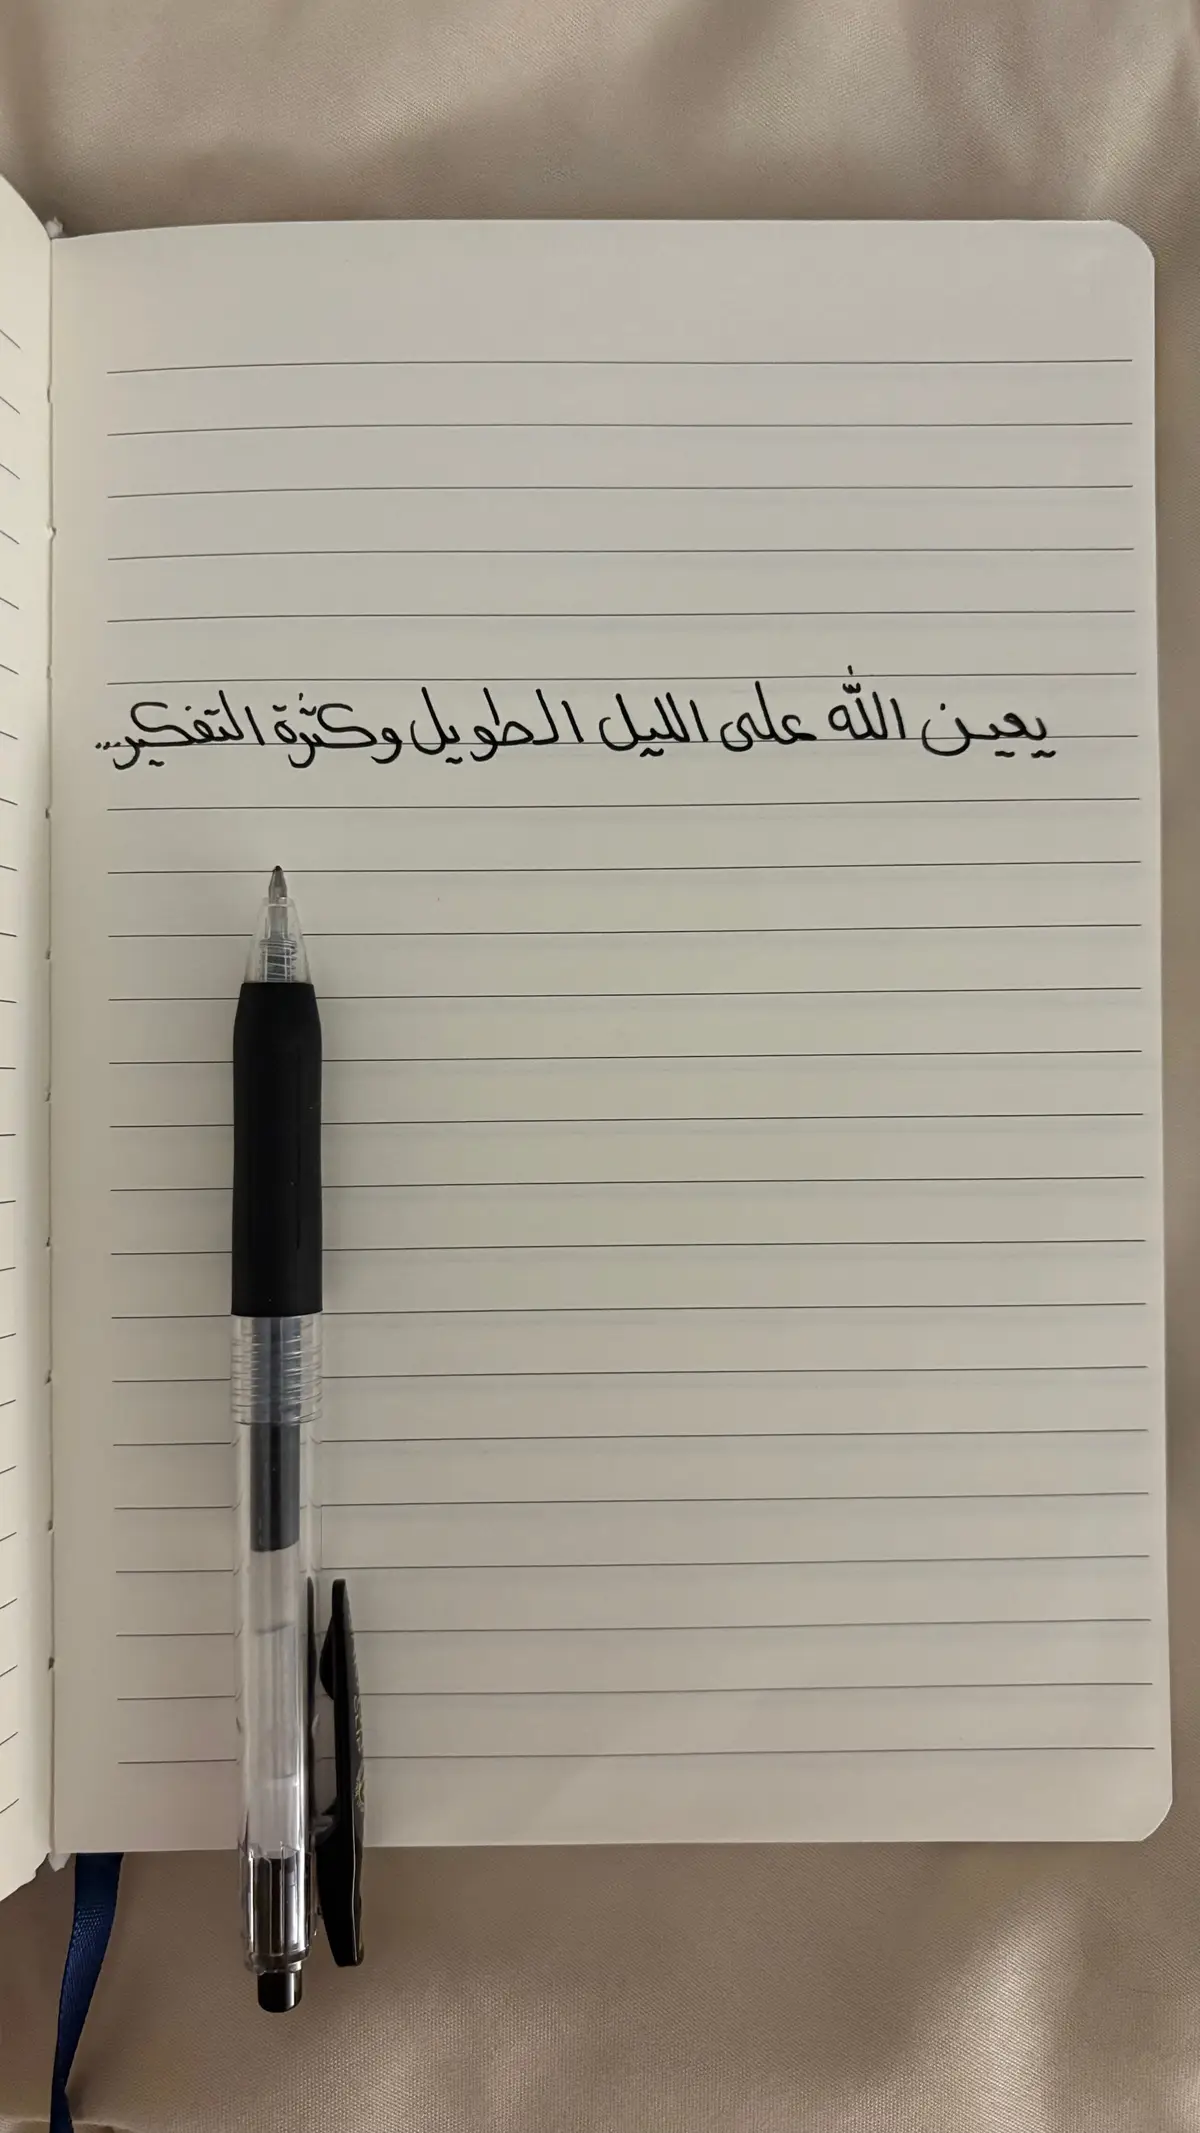 يعين الله على الليل الطويل وكثرة التفكير...